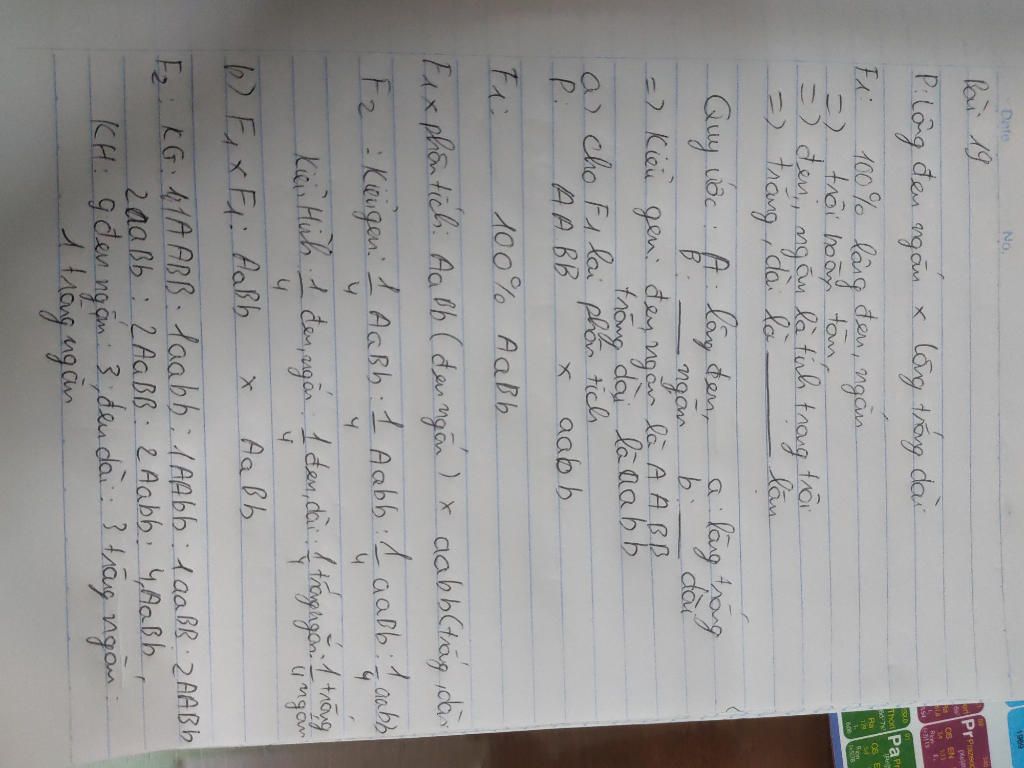 Date No.
Bài 19
P: Lông đen ngắn x lông trắng dài
F1: 100% lông đen, ngắn
=) trội hoàn toàn,
=) đen, ngắn là tính trạng trội
=) trắng, dài là ______ lặn
Quy ước: A: lông đen, a: lông trắng
B: ___ ngắn b: ___ dài
=) Kiểu gen: đen, ngắn là AABB
trắng dài là aabb
a) cho F1 lai phân tích
P: AABB x aabb
F1: 100% AaBb
F1 x phân tích: AaBb (đen ngắn) x aabb (trắng, dài)
F2: Kiểu gen: 1/4 AaBb : 1/4 Aabb : 1/4 aaBb : 1/4 aabb
Kiểu Hình: 1/4 đen, ngắn : 1/4 đen, dài : 1/4 trắng ngắn : 1/4 trắng
ngắn
b) F1 x F1: AaBb x AaBb
F2: KG: 1AABB : 1aabb : 1AAbb : 1aaBB : 2AABb
2aaBb : 2AaBB : 2Aabb : 4AaBb,
KH: 9 đen ngắn : 3 đen dài : 3 trắng ngắn :
1 trắng ngắn
1989
Pr
Pa